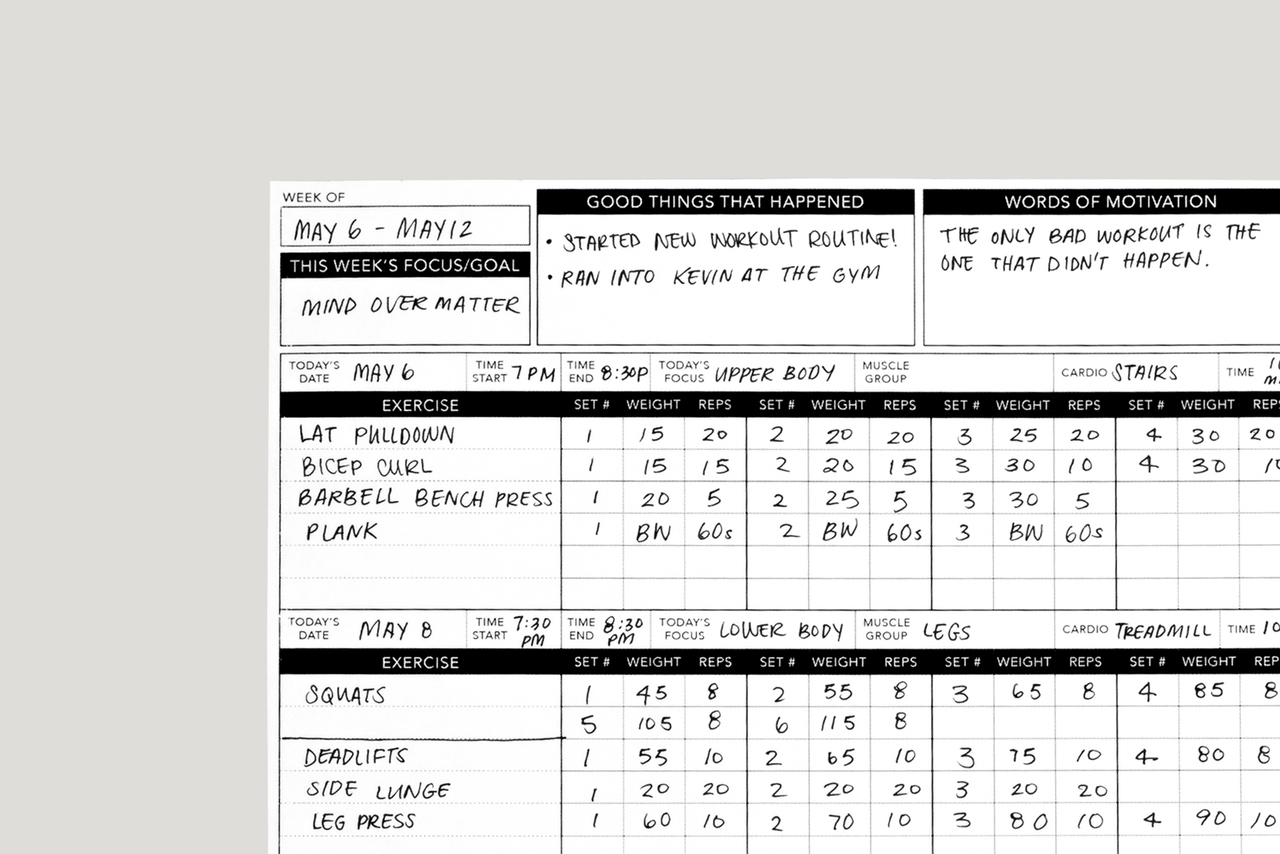 WEEK OF
MAY 6 - MAY 12
THIS WEEK'S FOCUS/GOAL
MIND OVER MATTER
GOOD THINGS THAT HAPPENED
• STARTED NEW WORKOUT ROUTINE!
• RAN INTO KEVIN AT THE GYM
WORDS OF MOTIVATION
THE ONLY BAD WORKOUT IS THE
ONE THAT DIDN'T HAPPEN.
TODAY'S DATE MAY 6 TIME START 7 PM TIME END 8:30P TODAY'S FOCUS UPPER BODY MUSCLE GROUP CARDIO STAIRS TIME
EXERCISE SET # WEIGHT REPS SET # WEIGHT REPS SET # WEIGHT REPS SET # WEIGHT REPS
LAT PULLDOWN 1 15 20 2 20 20 3 25 20 4 30 20
BICEP CURL 1 15 15 2 20 15 3 30 10 4 30
BARBELL BENCH PRESS 1 20 5 2 25 5 3 30 5
PLANK 1 BW 60s 2 BW 60s 3 BW 60s
TODAY'S DATE MAY 8 TIME START 7:30 PM TIME END 8:30 PM TODAY'S FOCUS LOWER BODY MUSCLE GROUP LEGS CARDIO TREADMILL TIME 10
EXERCISE SET # WEIGHT REPS SET # WEIGHT REPS SET # WEIGHT REPS SET # WEIGHT REP
SQUATS 1 45 8 2 55 8 3 65 8 4 85 8
5 105 8 6 115 8
DEADLIFTS 1 55 10 2 65 10 3 75 10 4 80 8
SIDE LUNGE 1 20 20 2 20 20 3 20 20
LEG PRESS 1 60 10 2 70 10 3 80 10 4 90 10